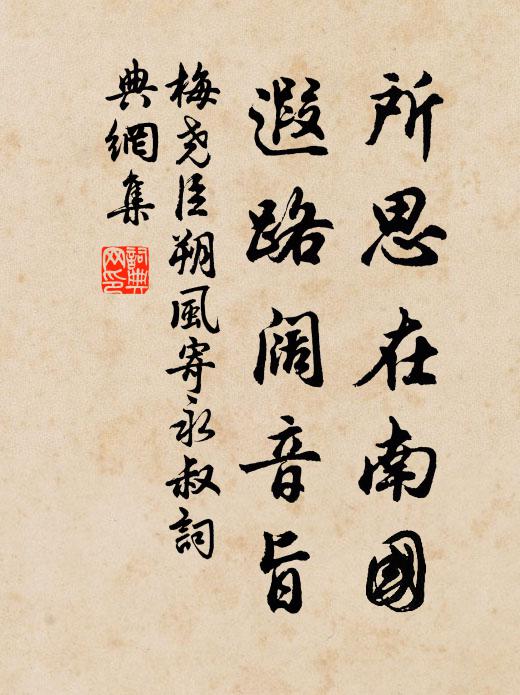 所思在南國
遐路阔音旨
梅尧臣朔風寄永叔詞
典網集
詞典
网印